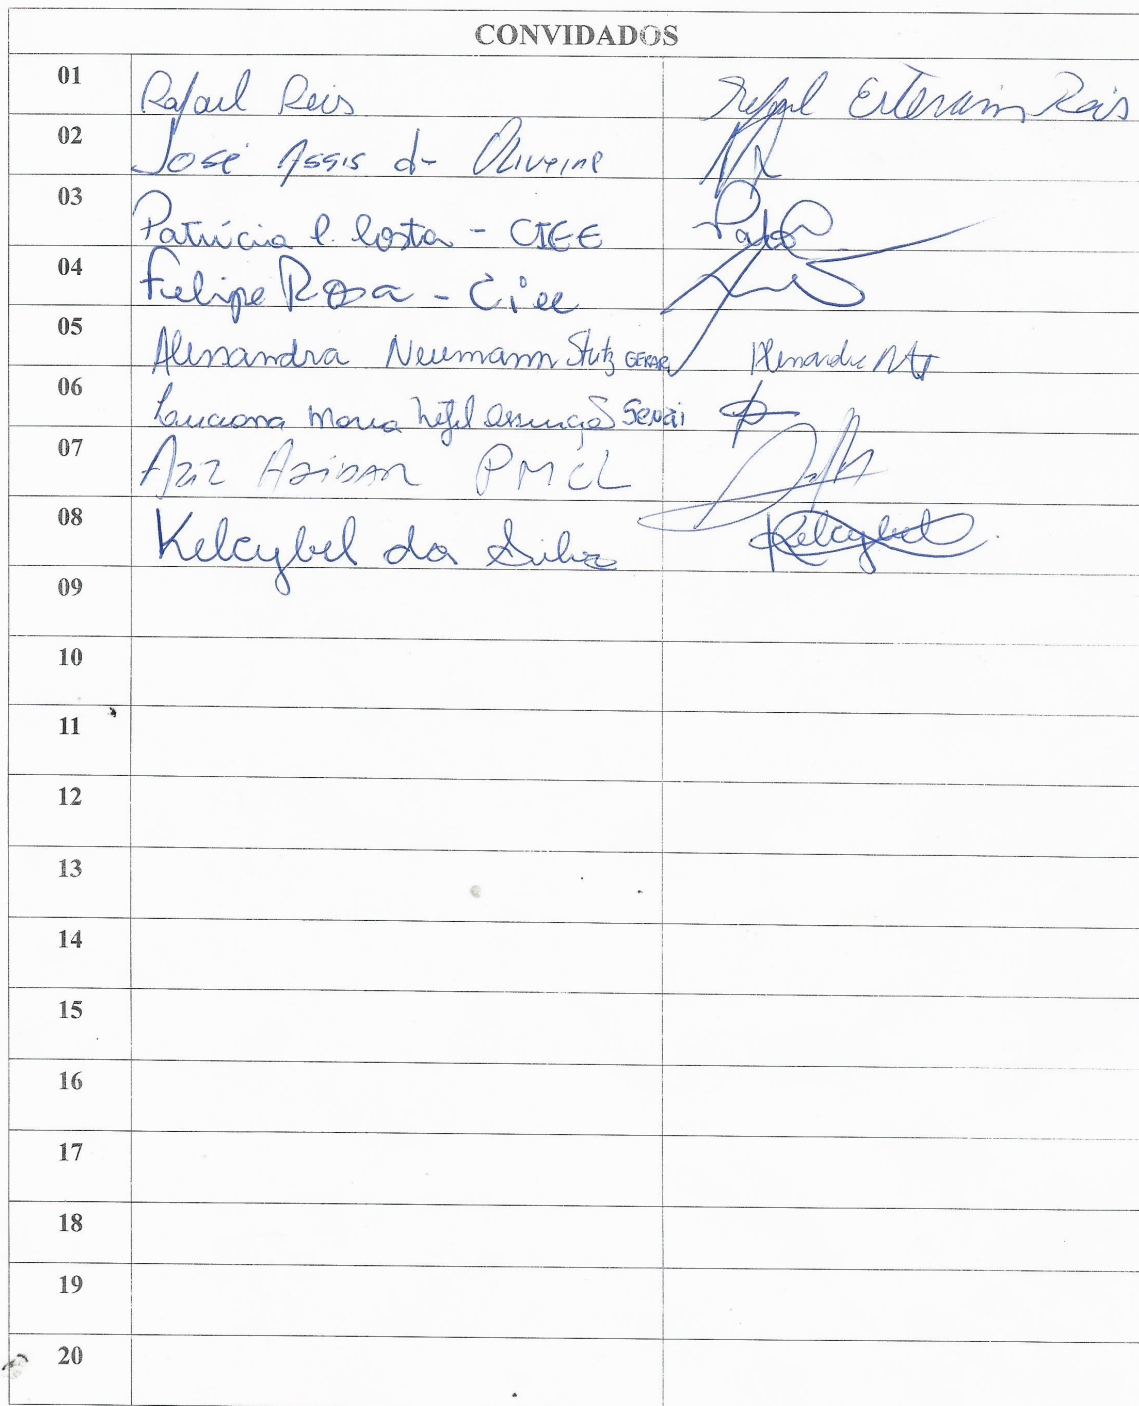 CONVIDADOS
01 Rafael Reis Rafael Estevam Reis
02 José Assis de Oliveira
03 Patrícia C. Costa - CIEE
04 Felipe Rosa - Ciee
05 Alessandra Neumann Stutz GERAR Alessandra
06 Luciana Maria Assunção Senai
07 Aziz PMCL
08 Kelcybel da Silva Kelcybel
09
10
11
12
13
14
15
16
17
18
19
20